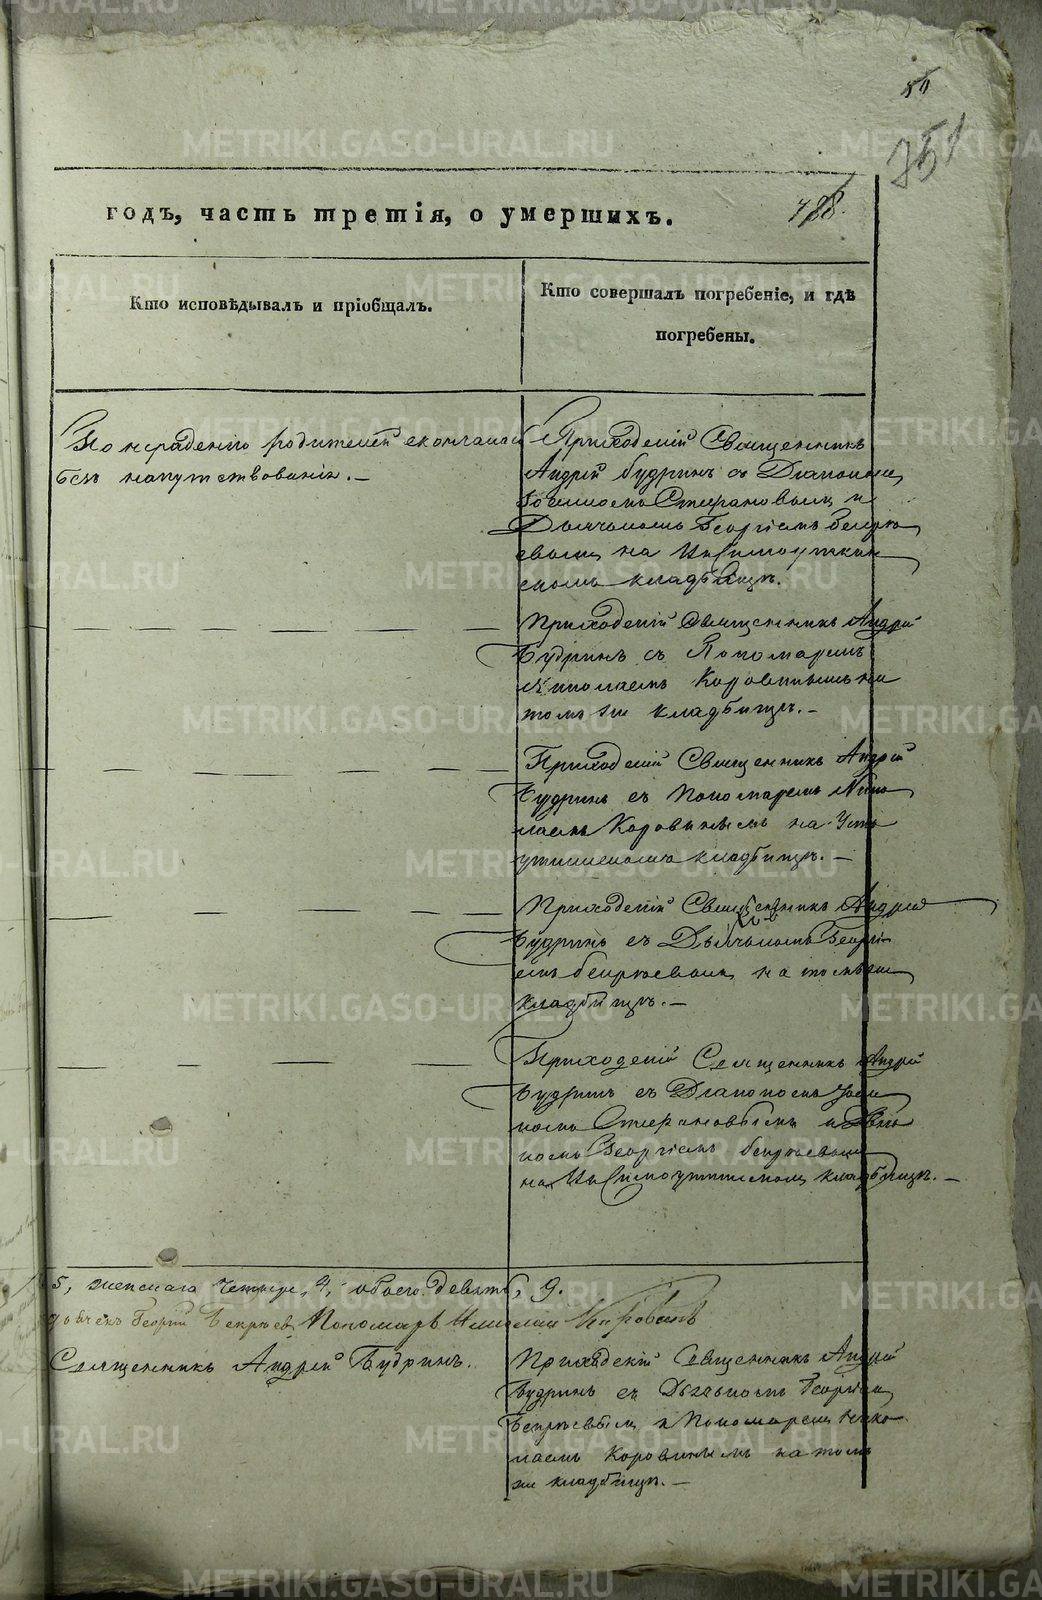 80
351
годъ, часть третія, о умершихъ.
488.
Кто исповѣдывалъ и пріобщалъ.
Кто совершалъ погребеніе, и гдѣ
погребены.
По нерадению родителей скончался
безъ напутствованія. —
Приходскій Священникъ
Андрей Будринъ съ Діакономъ
Стефановымъ и
Дьячкомъ Георгіемъ
на
скомъ кладбищѣ.
Приходскій Священникъ Андрей
Будринъ съ Пономаремъ
Николаемъ Коровинымъ на
томъ же кладбищѣ. —
Приходскій Священникъ Андрей
Будринъ съ Пономаремъ Нико
лаемъ Коровинымъ на Усть
уткинскомъ кладбищѣ. —
Приходскій Священникъ Андрей
Будринъ съ Дьячкомъ Георгі
емъ на томъ же
кладбищѣ. —
Приходскій Священникъ Андрей
Будринъ съ Діакономъ
Стефановымъ и Дьяч
комъ Георгіемъ
на кладбищѣ. —
5, женскаго четыре, 4, обоего девять, 9.
Дьячекъ Георгій Пономарь Николай Коровинъ
Священникъ Андрей Будринъ.
Приходскій Священникъ Андрей
Будринъ съ Дьячкомъ Георгіемъ
и Пономаремъ Нико
лаемъ Коровинымъ на томъ
же кладбищѣ. —
METRIKI.GASO-URAL.RU